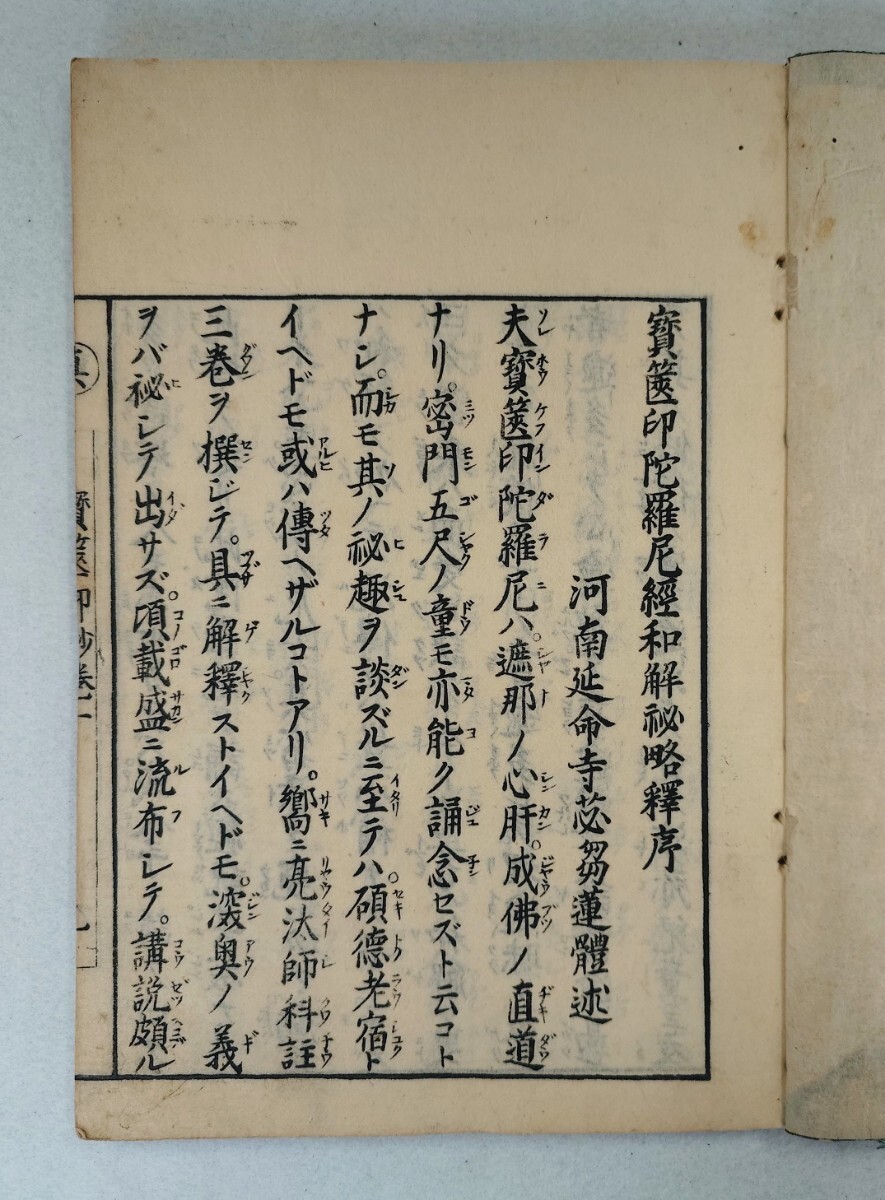 寶篋印陀羅尼經和解祕略釋序
河南延命寺苾芻蓮體述
夫寶篋印陀羅尼ハ。遮那ノ心肝。成佛ノ直道
ナリ。密門五尺ノ童モ亦能ク誦念セズト云コト
ナシ。而モ其ノ祕趣ヲ談ズルニ至テハ。碩德老宿ト
イヘドモ或ハ傳ヘザルコトアリ。嚮ニ亮汰師科註
三巻ヲ撰ジテ。具ニ解釋ストイヘドモ。深奥ノ義
ヲバ祕シテ出サズ。頃載盛ニ流布シテ。講説頗ル
寶篋印鈔巻一